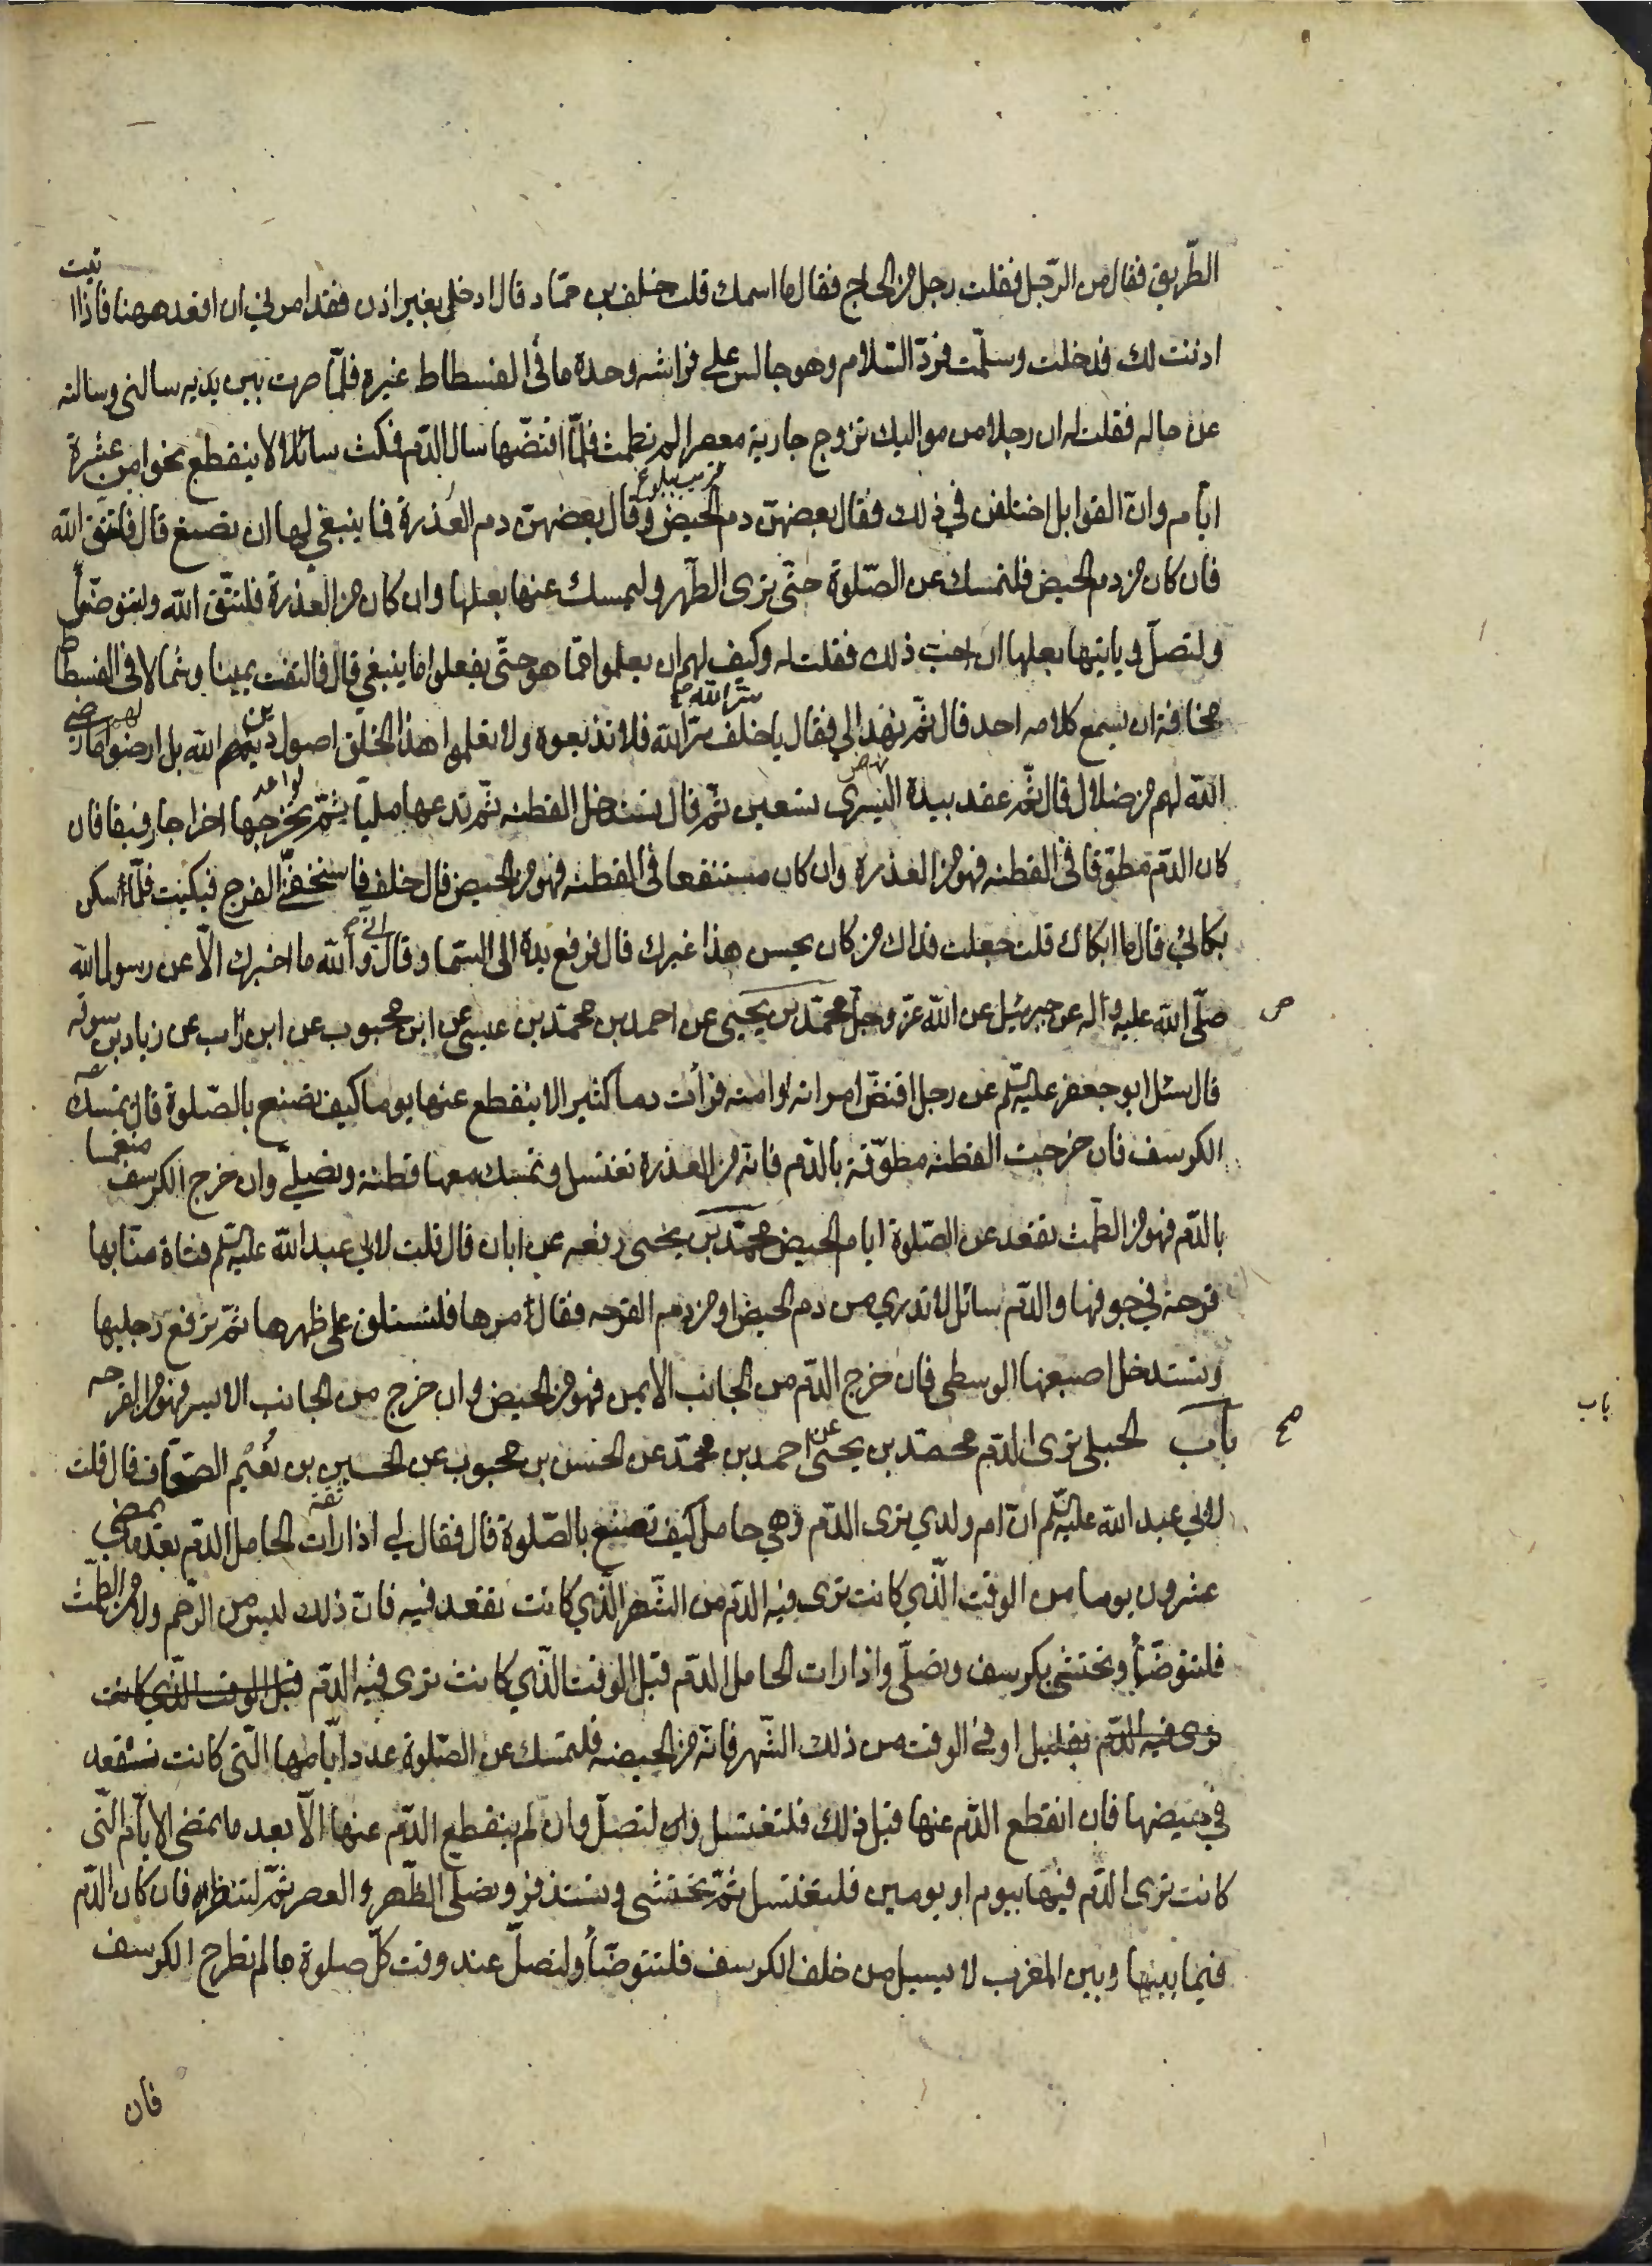 الطّريق فقال من الرّجل فقلت رجل من الحاج فقال ما اسمك قلت خلف بن حمّاد قال ادخل بغير اذن فقد امرني ان اقعد ههنا فاذا اتيت
اذنت لك فدخلت وسلّمت فردّ السّلام وهو جالس على فراشه وحده ما في الفسطاط غيره فلمّا صرت بين يديه سالنى وسالته
عن حاله فقلت له ان رجلا من مواليك تزوج جارية معصرا لم تطمث فلمّا افتضّها سال الدّم فمكث سائلا لا ينقطع نحوا من عشرة
قريب ببلوغ
ايّام وانّ القوابل اختلفن في ذلك فقال بعضهنّ دم الحيض وقال بعضهنّ دم العُذرة فما ينبغي لها ان تصنع قال فلتتّق الله
فان كان من دم الحيض فلتمسك عن الصّلوة حتّى ترى الطّهر وليمسك عنها بعلها وان كان من العذرة فلتتّق الله ولتتوضّأ
ولتصلّ وياتيها بعلها ان احبّ ذلك فقلت له وكيف لهم ان يعلموا ممّا هو حتّى يفعلوا ما ينبغي قال فالتفت يمينا وشمالا في الفسطاط
سرّ الله
مخافة ان يسمع كلامه احد قال ثمّ نهد الي فقال يا خلف سرّ الله فلا تذيعوه ولا تعلموا هذا الخلق اصول دين الله بل ارضوا لهم ما رضي
نهض
الله لهم من ضلال قال ثمّ عقد بيده اليسرى تسعين ثمّ قال تستدخل القطنه ثمّ تدعها مليّا ثمّ تخرجها اخراجا رفيقا فان
كان الدّم مطوّقا في القطنه فهو من العذره وان كان مستنقعا في القطنه فهو من الحيض قال خلف فاستخفّني الفرح فبكيت فلمّا سكن
بكائي قال ما ابكاك قلت جعلت فداك من كان يحسن هذا غيرك قال فرفع يده الى السّما وقال انّي والله ما اخبرك الّا عن رسول الله
صلّى الله عليه واله عن جبرئيل عن الله عزّ وجلّ محمّد بن يحيى عن احمد بن محمّد بن عيسى عن ابن محبوب عن ابن رئاب عن زياد بن سوقه
قال سئل ابو جعفر عليه السّلم عن رجل افتضّ امراته او امته فرأت دما كثيرا لا ينقطع عنها يوما كيف تصنع بالصّلوة قال تمسك
الكرسف فان خرجت القطنه مطوّقة بالدّم فانّه من العذرة تغتسل وتمسك معها قطنة وتصلّي وان خرج الكرسف منغمسا
بالدّم فهو من الطّمث تقعد عن الصّلوة ايام الحيض محمّد بن يحيى رفعه عن ابان قال قلت لابي عبد الله عليه السّلم فتاة منّا بها
قرحة في جوفها والدّم سائل لا تدري من دم الحيض او من دم القرحه فقال مرها فلتستلق على ظهرها ثمّ ترفع رجليها
وتستدخل اصبعها الوسطى فان خرج الدّم من الجانب الايمن فهو من الحيض وان خرج من الجانب الايسر فهو من القرحه
باب
باب الحبلى ترى الدّم محمّد بن يحيى عن احمد بن محمّد عن الحسن بن محبوب عن الحسين بن نُعَيم الصحّاف قال قلت
ثقة
لابي عبد الله عليه السّلم انّ ام ولدي ترى الدّم وهي حامل كيف تصنع بالصّلوة قال فقال لي اذا رات الحامل الدّم بعد ما يمضي
عشرون يوما من الوقت الّذي كانت ترى فيه الدّم من الشّهر الّذي كانت تقعد فيه فانّ ذلك ليس من الرّحم ولا من الطّمث
فلتتوضّأ وتحتشي بكرسف وتصلّي واذا رات الحامل الدّم قبل الوقت الّذي كانت ترى فيه الدّم قبل الوقت الّذي كانت
ترى فيه الدّم بقليل او في الوقت من ذلك الشّهر فانّه من الحيضه فلتمسك عن الصّلوة عدد ايّامها الّتي كانت تقعد
في حيضها فان انقطع الدّم عنها قبل ذلك فلتغتسل ولتصلّ وان لم ينقطع الدّم عنها الّا بعد ما تمضي الايّام الّتي
كانت ترى الدّم فيها بيوم او يومين فلتغتسل ثمّ تحتشي وتستذفر وتصلّي الظّهر والعصر ثمّ لتنظر فان كان الدّم
فيما بينها وبين المغرب لا يسيل من خلف الكرسف فلتتوضّأ ولتصلّ عند وقت كلّ صلوة ما لم تطرح الكرسف
فان